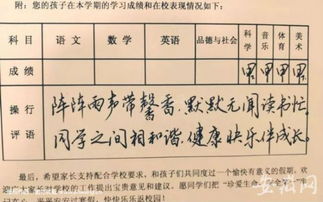 附:您的孩子在本学期的学习成绩和在校表现情况如下:
科目 语文 数学 英语 品德与社会 科学 音乐 体育 美术
成绩 甲 甲 甲 甲
操行评语 阵阵雨声带馨香,默默无闻读书忙。
同学之间相和谐,健康快乐伴成长。
最后,希望家长支持配合学校要求,和孩子们共同度过一个愉快有意义的假期。欢
迎广大家长对学校的工作提出宝贵意见和建议。愿同学们把“珍爱生命
快快乐乐返校园!
安徽网